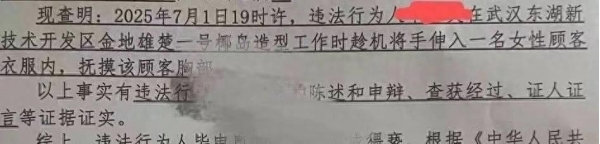 现查明：2025年7月1日19时许，违法行为人 在武汉东湖新
技术开发区金地雄楚一号椰岛造型工作时趁机将手伸入一名女性顾客
衣服内，抚摸该顾客胸部
以上事实有违法行 陈述和申辩、查获经过、证人证
言等证据证实。
综上，违法行为人毕 猥亵，根据《中华人民共